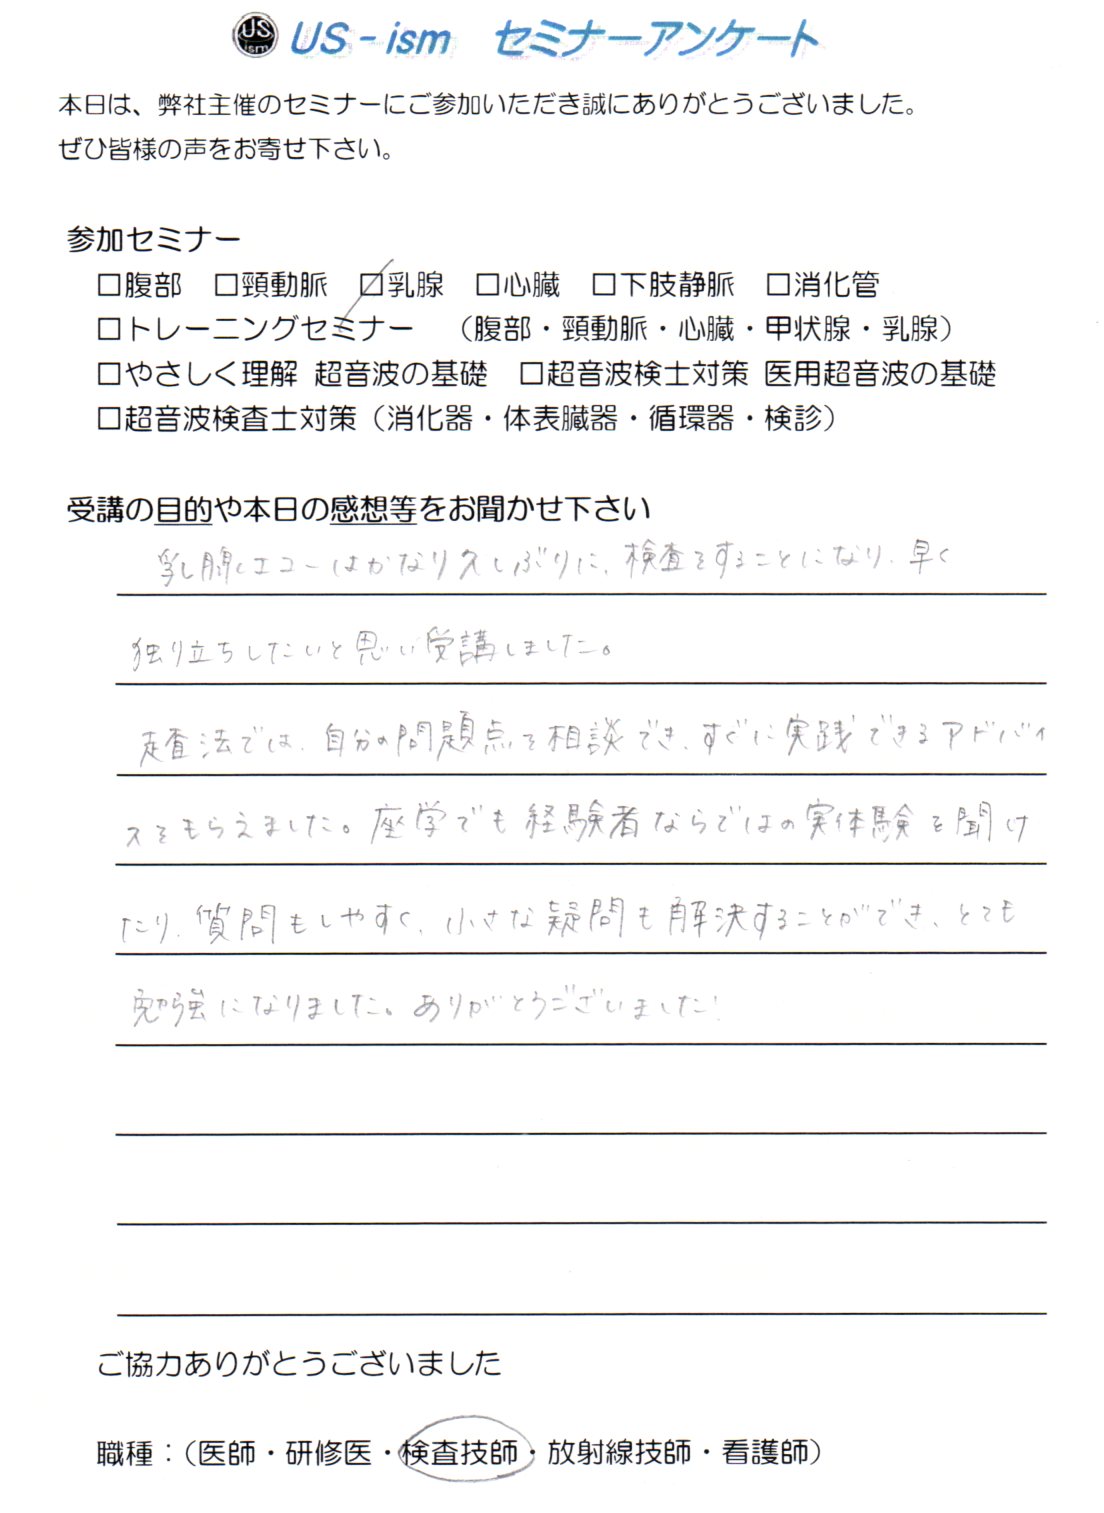 US ism US-ism セミナーアンケート
本日は、弊社主催のセミナーにご参加いただき誠にありがとうございました。
ぜひ皆様の声をお寄せ下さい。
参加セミナー
□腹部 □頸動脈 □乳腺 □心臓 □下肢静脈 □消化管
□トレーニングセミナー （腹部・頸動脈・心臓・甲状腺・乳腺）
□やさしく理解 超音波の基礎 □超音波検士対策 医用超音波の基礎
□超音波検査士対策（消化器・体表臓器・循環器・検診）
受講の目的や本日の感想等をお聞かせ下さい
乳腺エコーはかなり久しぶりに、検査をすることになり、早く
独り立ちしたいと思い受講しました。
走査法では、自分の問題点を相談でき、すぐに実践できるアドバイ
スをもらえました。座学でも経験者ならではの実体験を聞け
たり、質問もしやすく、小さな疑問も解決することができ、とても
勉強になりました。ありがとうございました!
ご協力ありがとうございました
職種：（医師・研修医・検査技師・放射線技師・看護師）